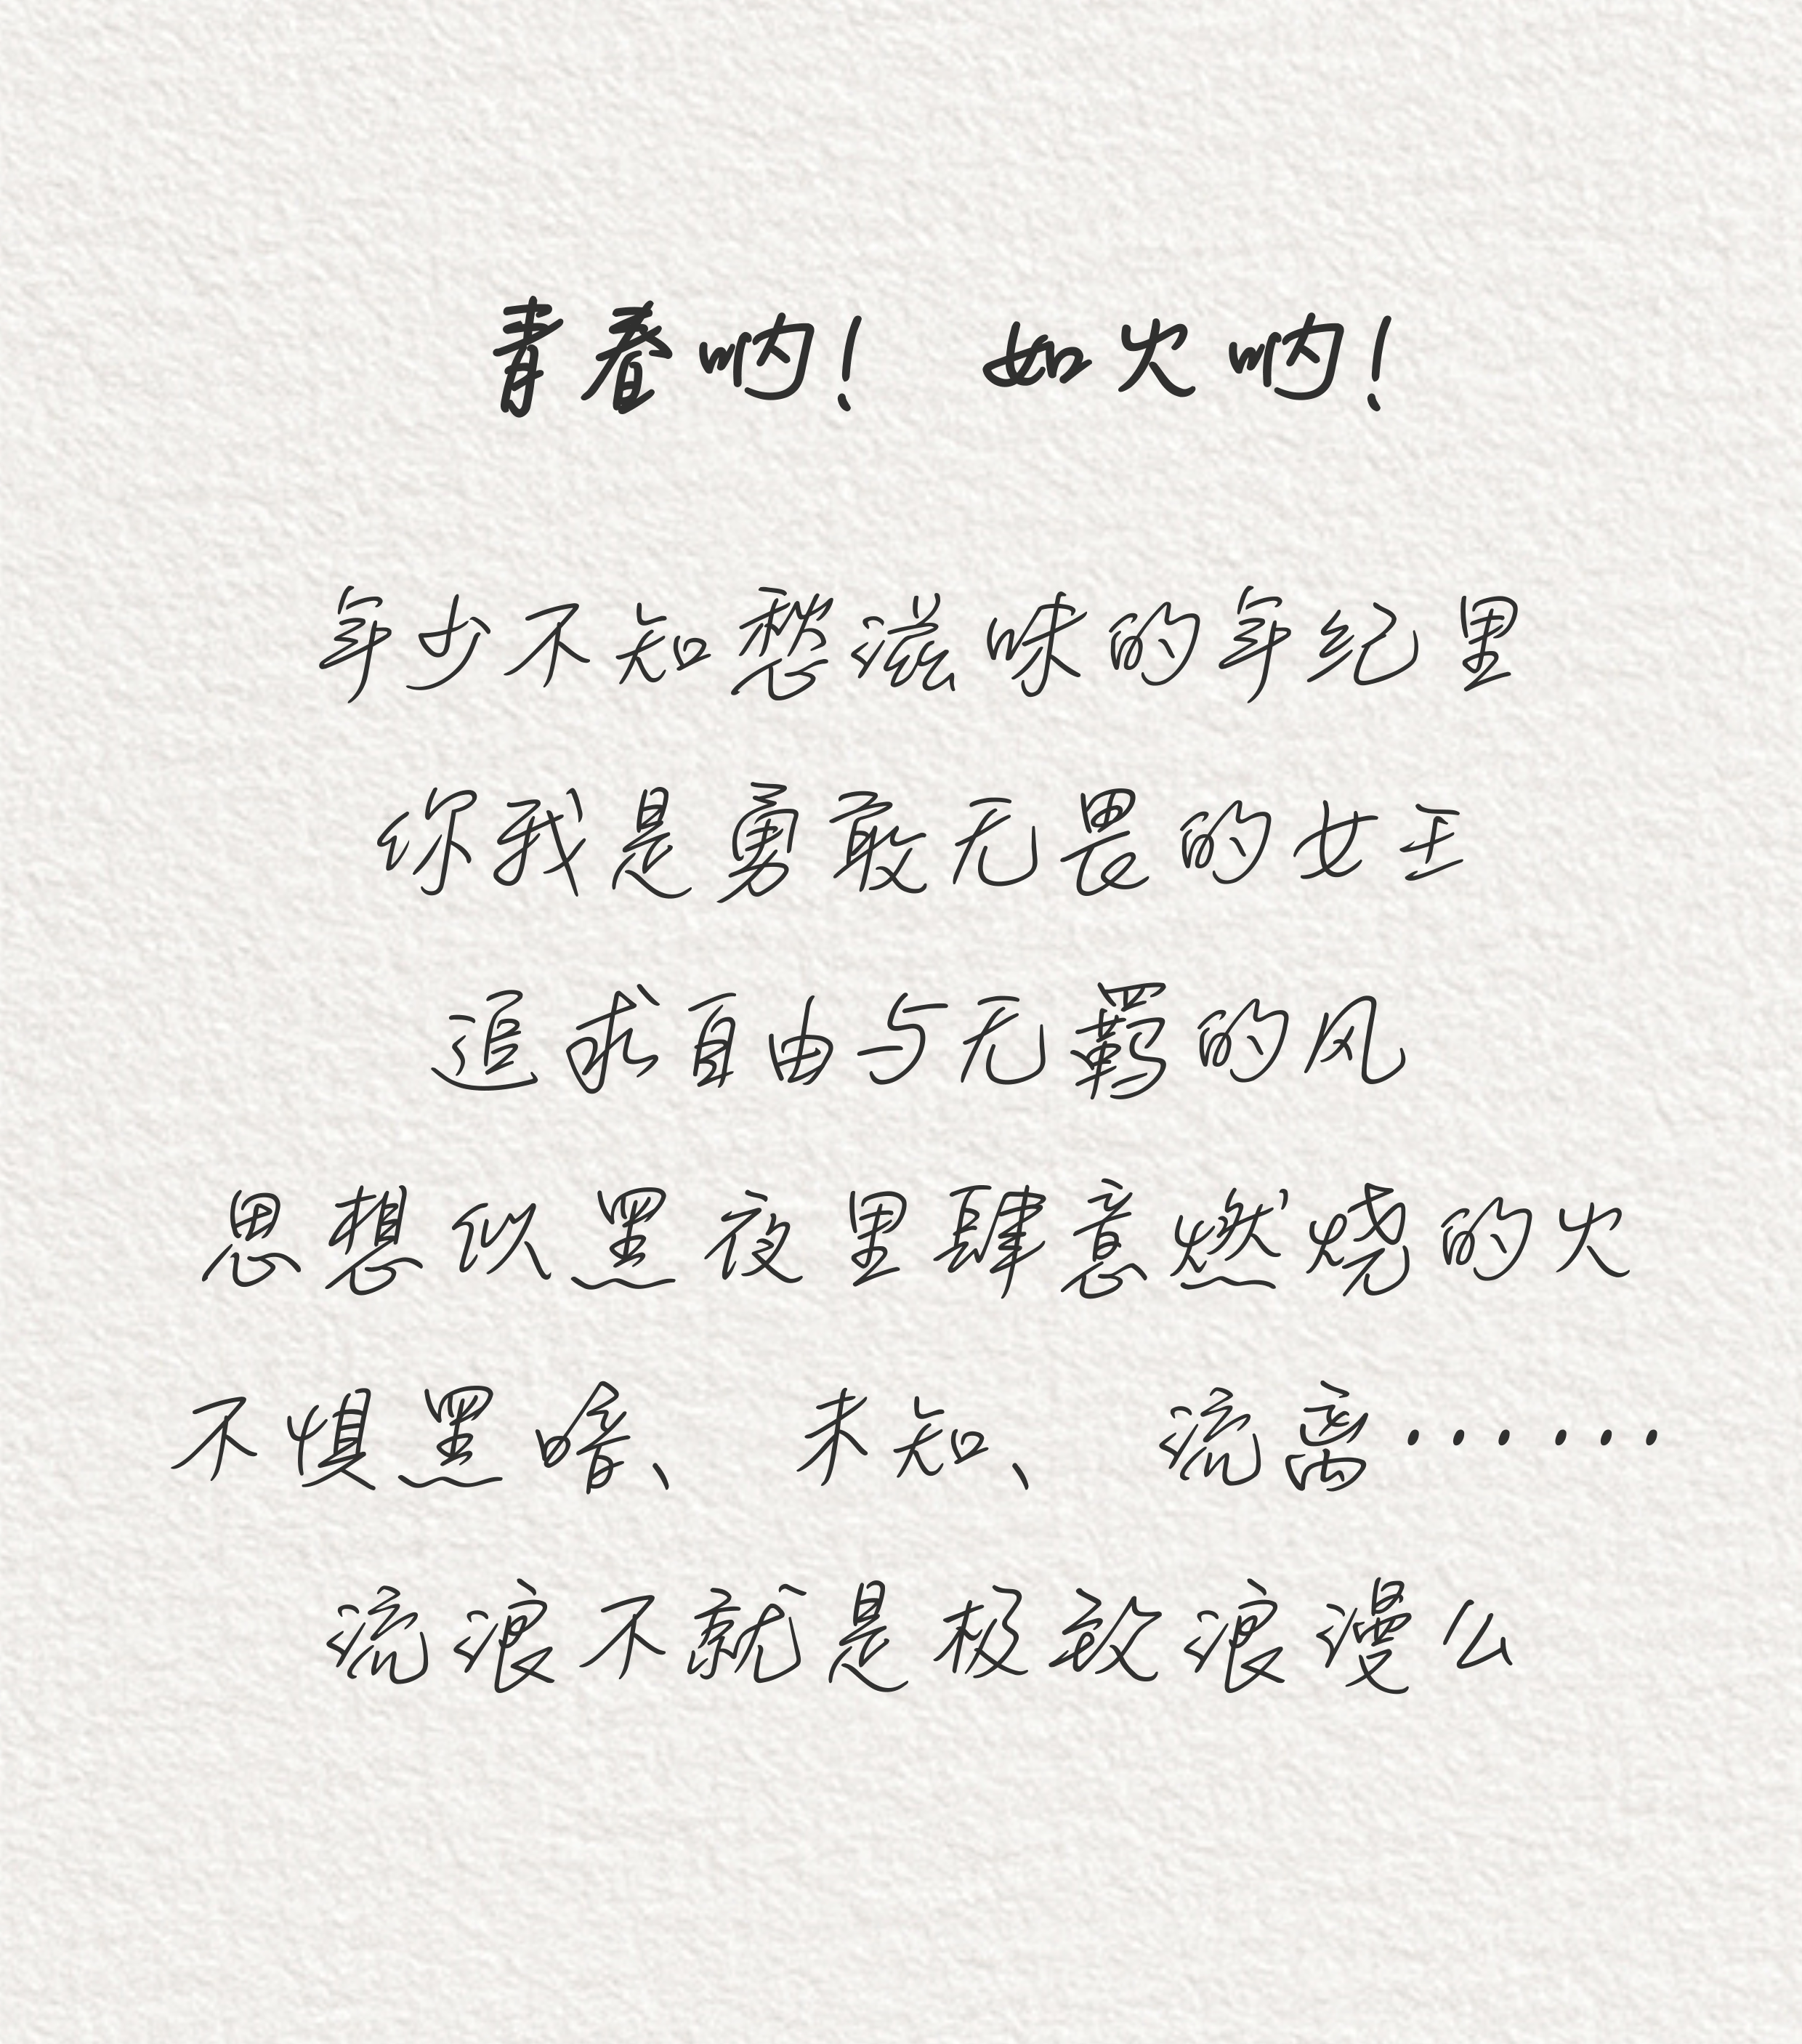 青春呐！ 如火呐！
年少不知愁滋味的年纪里
你我是勇敢无畏的女王
追求自由与无羁的风
思想似黑夜里肆意燃烧的火
不惧黑暗、 未知、 流离······
流浪不就是极致浪漫么